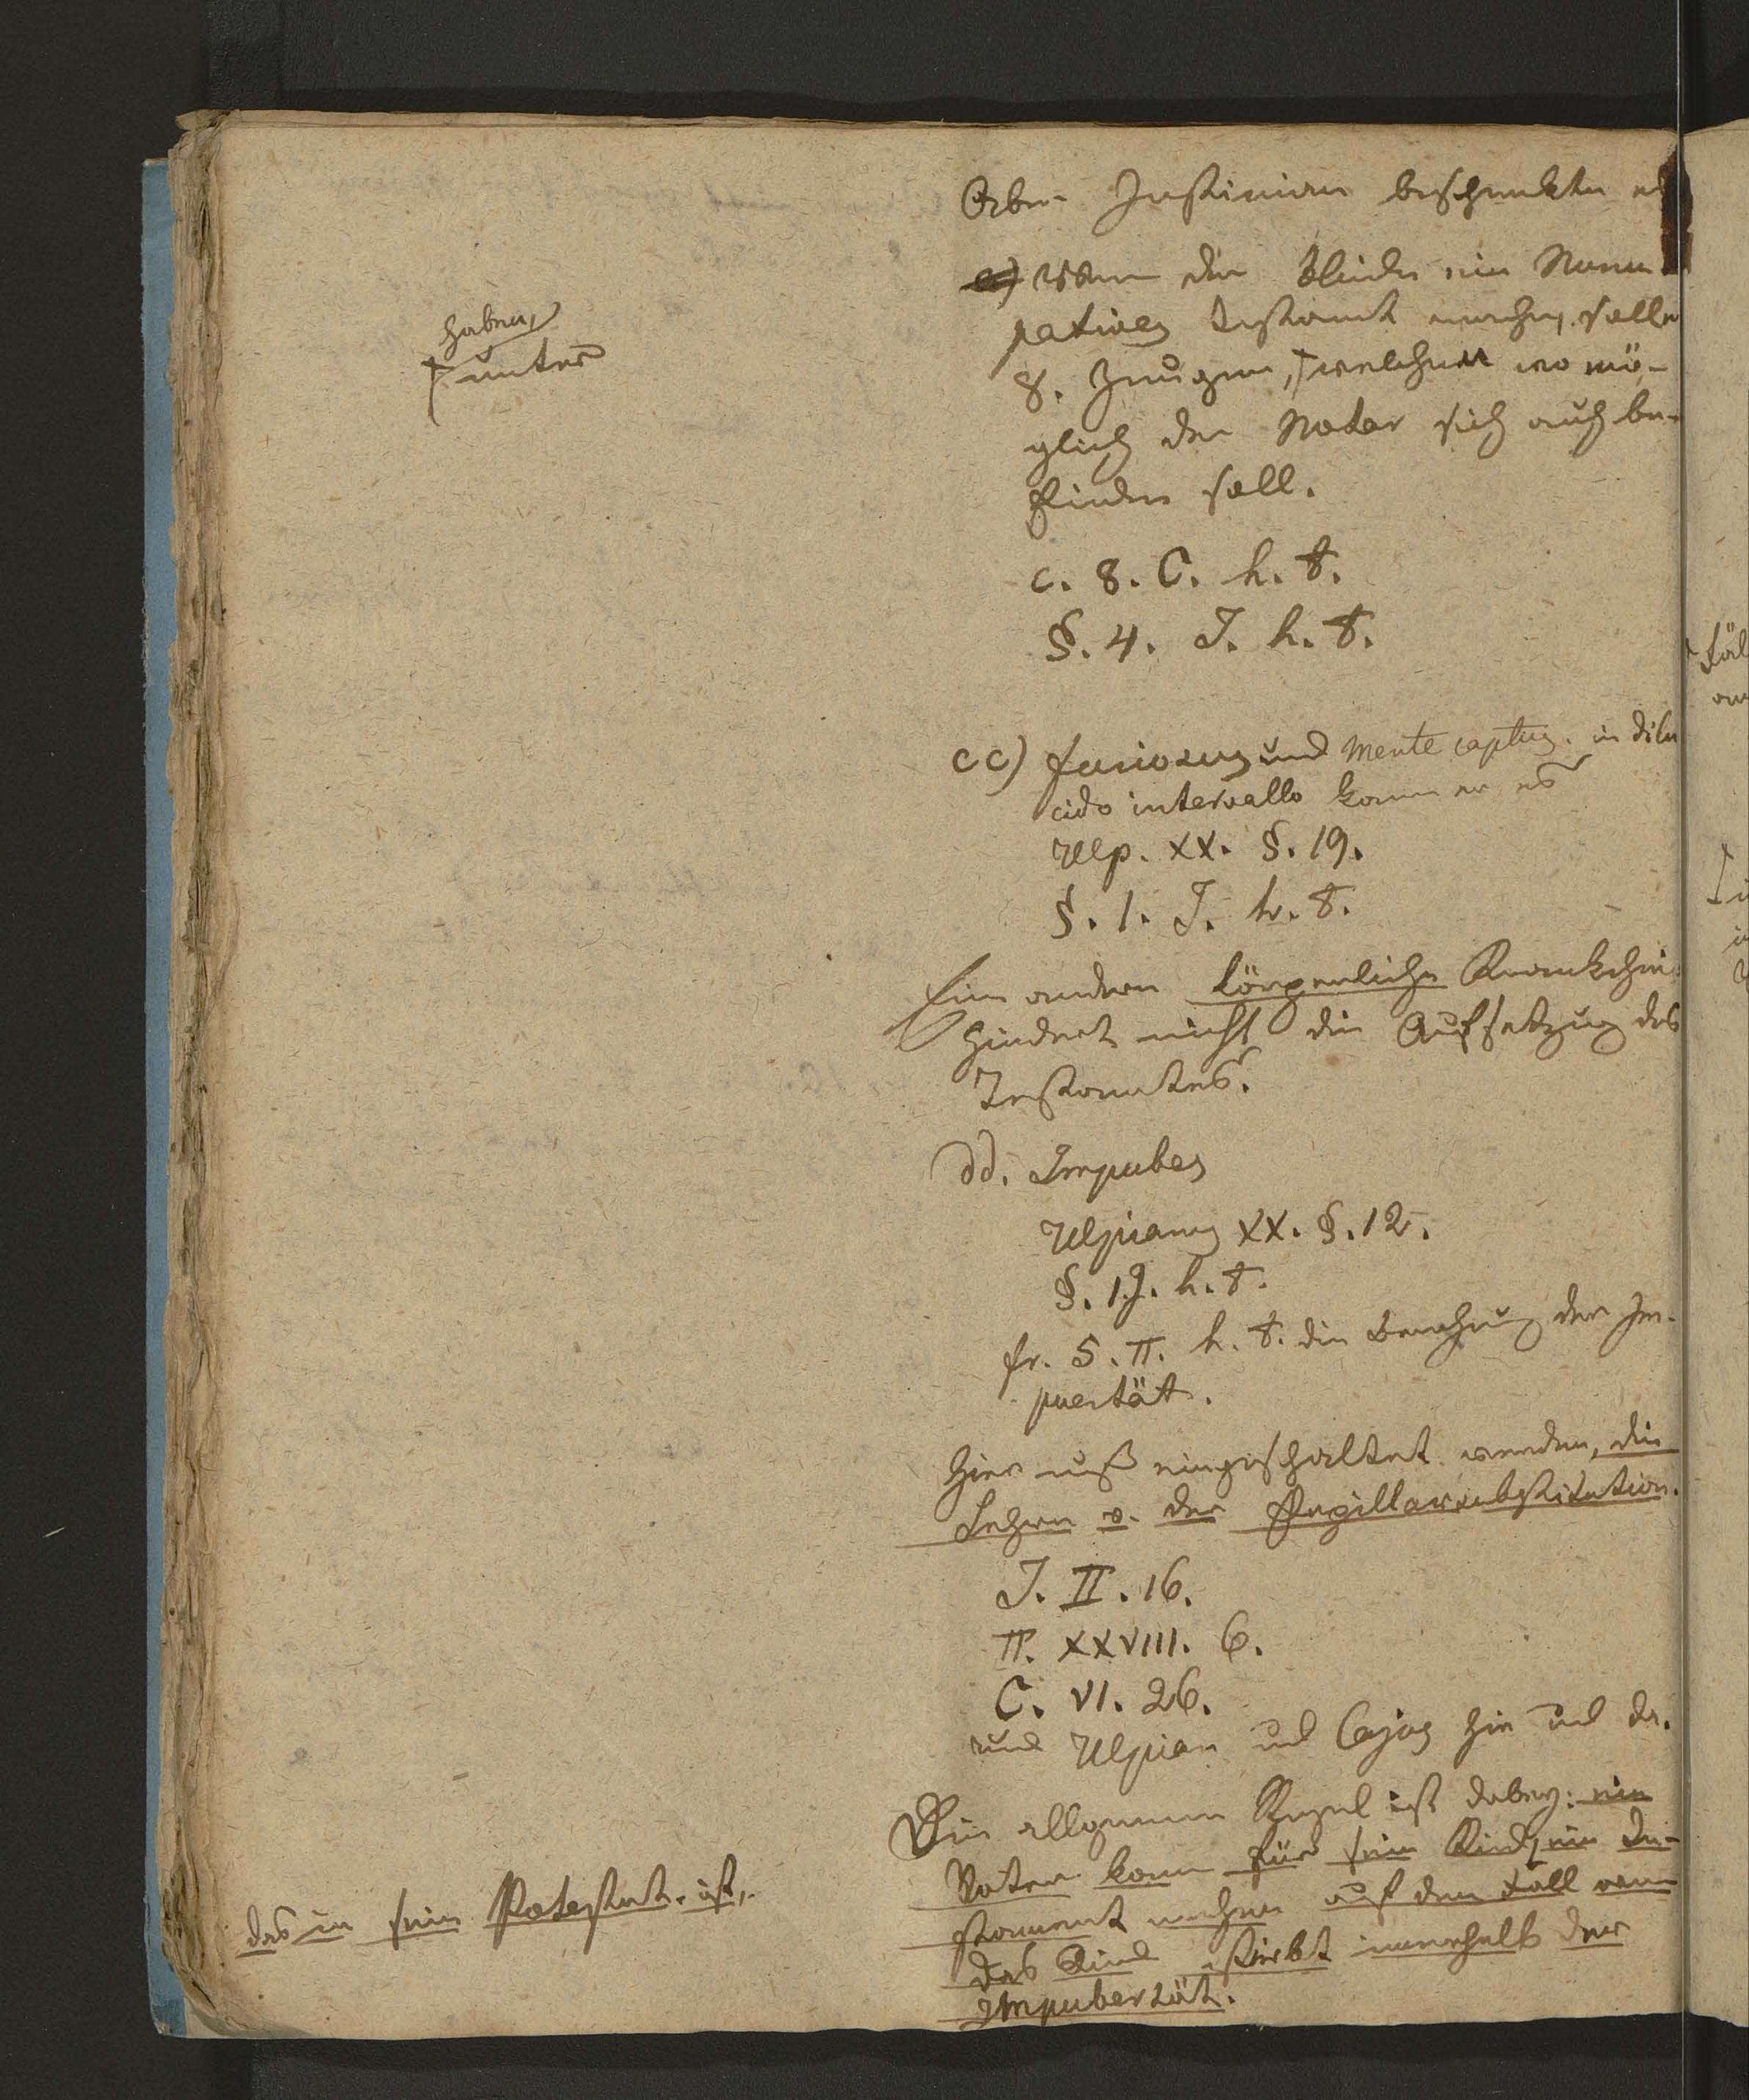 Aber Justinian beschränkte es
Wenn der Blinde ein Nuncu
patives Testament machen, solle
8. Zeugen, ⌈welchen wo mö-
haben,
⌈unter
glich der Notar sich auch be-
finden soll.
c. 8. C. h. t.
§. 4. J. h. t.
cc) furiosus und mente captus. in dilu
cido intervallo kann er es
Ulp. XX. §. 19.
§. 1. J. h. t.
Eine andere körperliche Krankheit
hindert nicht die Aufsetzung des
Testamtes.
dd. Impubes
Ulpianus XX. §. 12.
§. 1 J. h. t.
fr. 5. π. h. t. die Berechnung der Im-
puertät.
Hier muß eingeschaltet werden, die
Lehre v. der Pupillarsubstitution.
J. II. 16.
π. XXVIII. 6.
C. VI. 26.
und Ulpian und Cajus hie und da.
Die allgemeine Regel ist dabey: ein
Vater kann für sein Kind, ein Te-
das in sein Potestat. ist,
stament machen auf den Fall wenn
das Kind stirbt innerhalb der
Impubertät.